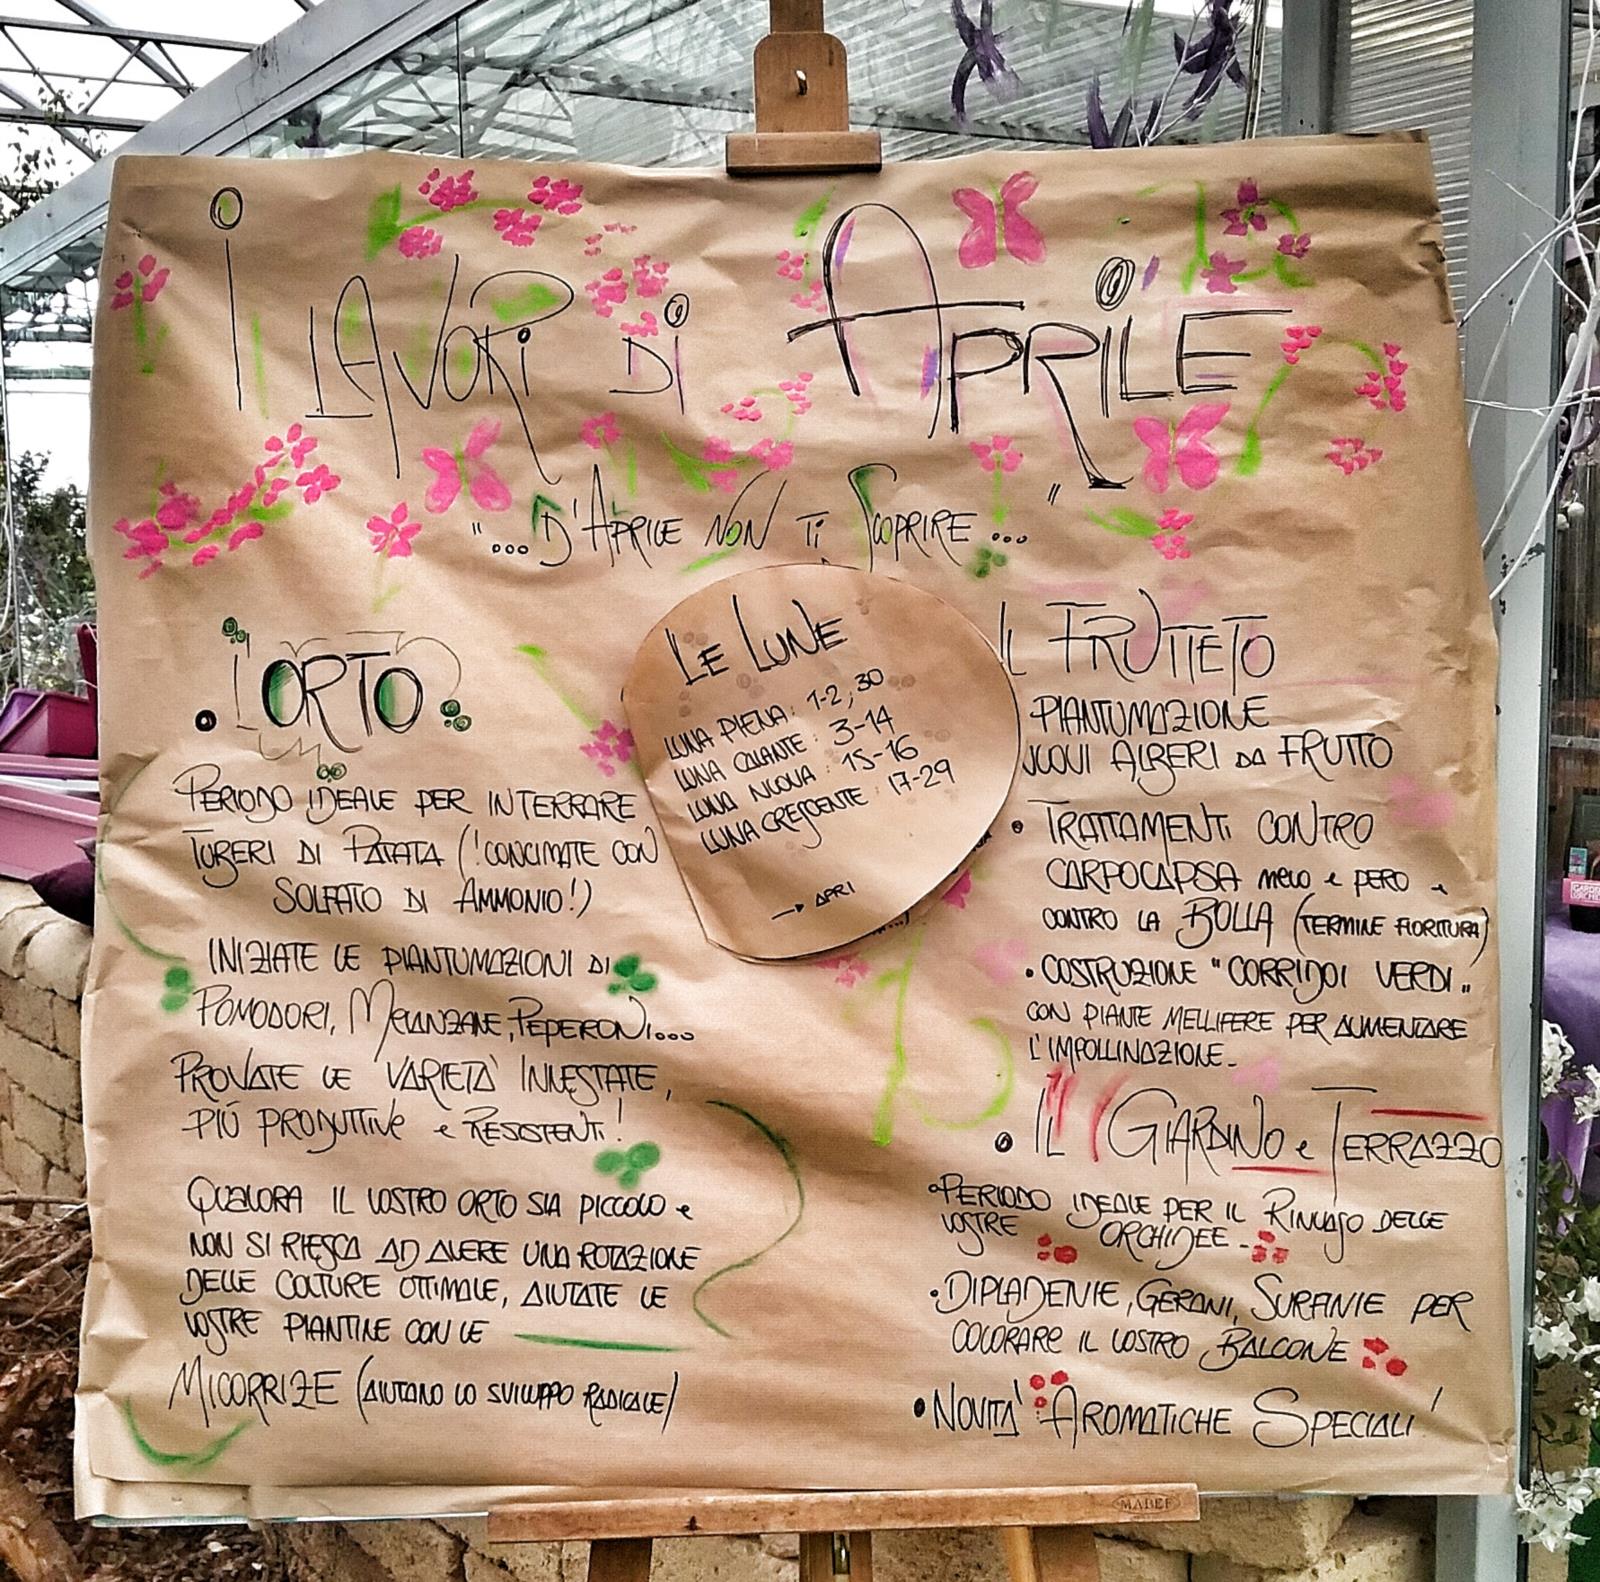 I LAVORI DI APRILE
"...D'APRILE NON TI SCOPRIRE..."
L'ORTO
PERIODO IDEALE PER INTERRARE
TUBERI DI PATATA (!CONCIMATE CON
SOLFATO DI AMMONIO!)
INIZIATE LE PIANTUMAZIONI DI
POMODORI, MELANZANE, PEPERONI....
PROVATE LE VARIETÀ INNESTATE,
PIÚ PRODUTTIVE e RESISTENTI!
QUALORA IL VOSTRO ORTO SIA PICCOLO e
NON SI RIESCA AD AVERE UNA ROTAZIONE
DELLE COLTURE OTTIMALE, AIUTATE LE
VOSTRE PIANTINE CON LE
MICORRIZE (AIUTANO LO SVILUPPO RADICALE)
LE LUNE
LUNA PIENA: 1-2, 30
LUNA CALANTE: 3-14
LUNA NUOVA: 15-16
LUNA CRESCENTE: 17-29
→ APRI
IL FRUTTETO
PIANTUMAZIONE
NUOVI ALBERI DA FRUTTO
• TRATTAMENTI CONTRO
CARPOCAPSA MELO e PERO e
CONTRO LA BOLLA (TERMINE FIORITURA)
• COSTRUZIONE "CORRIDOI VERDI"
CON PIANTE MELLIFERE PER AUMENTARE
L'IMPOLLINAZIONE-
• IL GIARDINO e TERRAZZO
• PERIODO IDEALE PER IL RINVASO DELLE
VOSTRE ORCHIDEE-
• DIPLADENIE, GERANI, SURFINIE PER
COLORARE IL VOSTRO BALCONE
• NOVITA' AROMATICHE SPECIALI!
MABEF